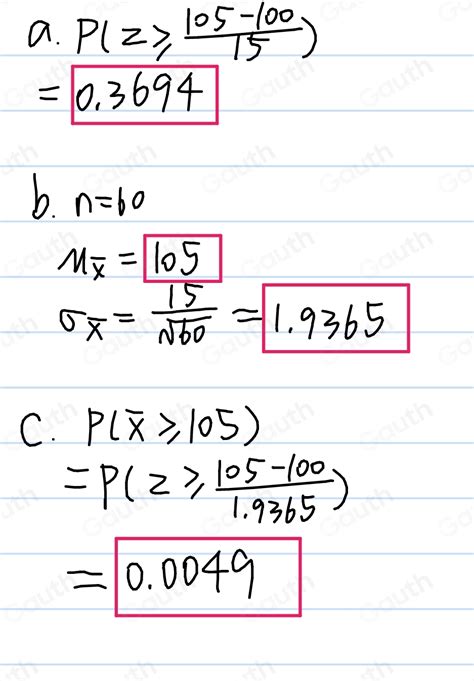 a. P(z ≥ (105-100)/15)
= 0.3694
b. n=60
μx̄ = 105
σx̄ = 15/√60 = 1.9365
C. P(x̄ ≥ 105)
= P(z ≥ (105-100)/1.9365)
= 0.0049
Gauth